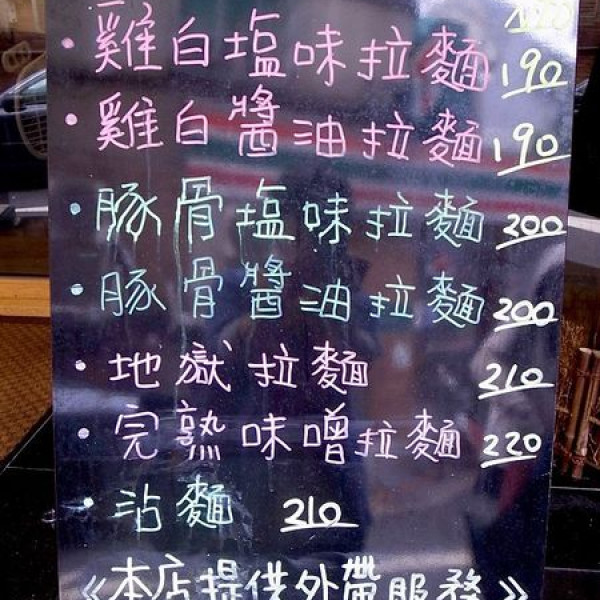 ・雞白塩味拉麵 190
・雞白醬油拉麵 190
・豚骨塩味拉麵 200
・豚骨醬油拉麵 200
・地獄拉麵 210
・完熟味噌拉麵 220
・沾麵 210
《本店提供外帶服務》